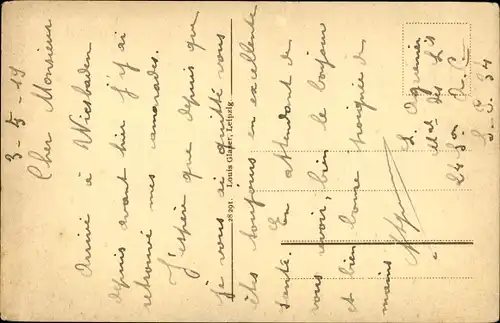 3-5-19
Cher Monsieur
Arrivé à Wiesbaden
depuis avant hier j'y ai
retrouvé mes camarades.
J'espère que depuis que
je vous ai quitté vous
êtes toujours en excellente
santé. En attendant de
vous revoir, bien le bonjour
et bien bonne poignée de
mains
L.
des
S.P. 34
28 291. Louis Glaser, Leipzig.